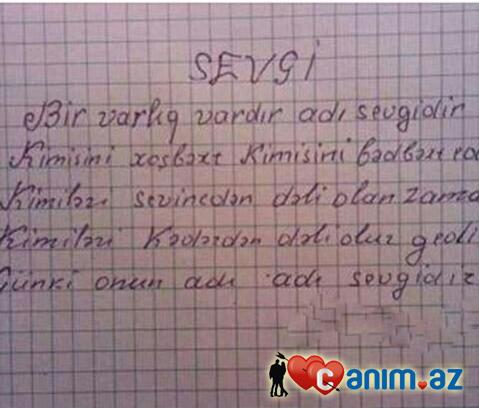 SEVGİ
Bir varlıq vardır adı sevgidir
Kimisini xoşbəxt Kimisini bədbəxt
Kimiləri sevincdən dəli olan zama
Kimiləri Kədərdən dəli olur
Çünki onun adı adı sevgidir
Canım.az